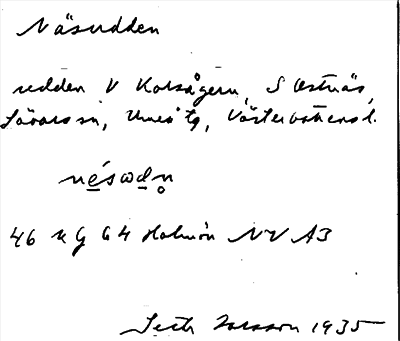 Näsudden
udden V Korsågern, S Ostnäs,
Sävars sn, Umeå tg, Västerbottens l.
nésωdn̥
46 u g 64 Holmön NV A3
Larsson 1935